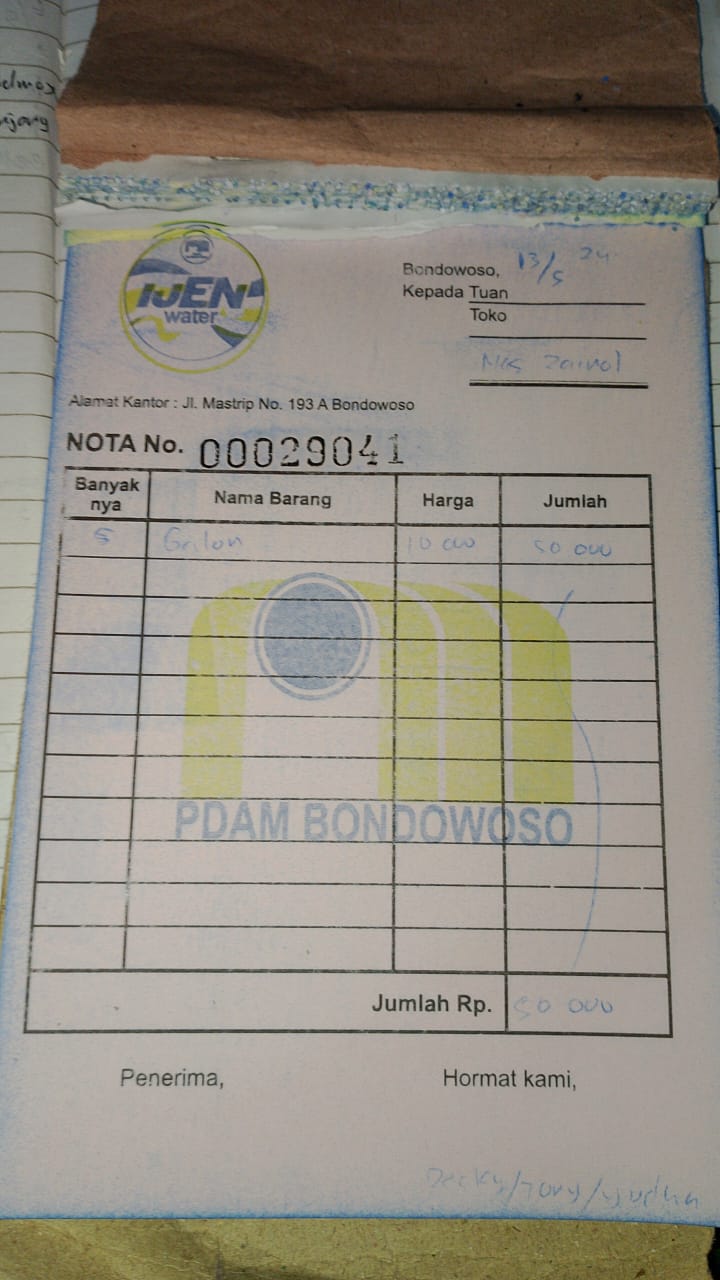 elmos
njang
IJEN
water
Bondowoso, 13/5 24
Kepada Tuan
Toko
Mas Zainol
Alamat Kantor : Jl. Mastrip No. 193 A Bondowoso
NOTA No. 00029041
Banyak nya Nama Barang Harga Jumlah
5 Galon 10 000 50 000
PDAM BONDOWOSO
Jumlah Rp. 50 000
Penerima, Hormat kami,
Decky/Tony/yudha